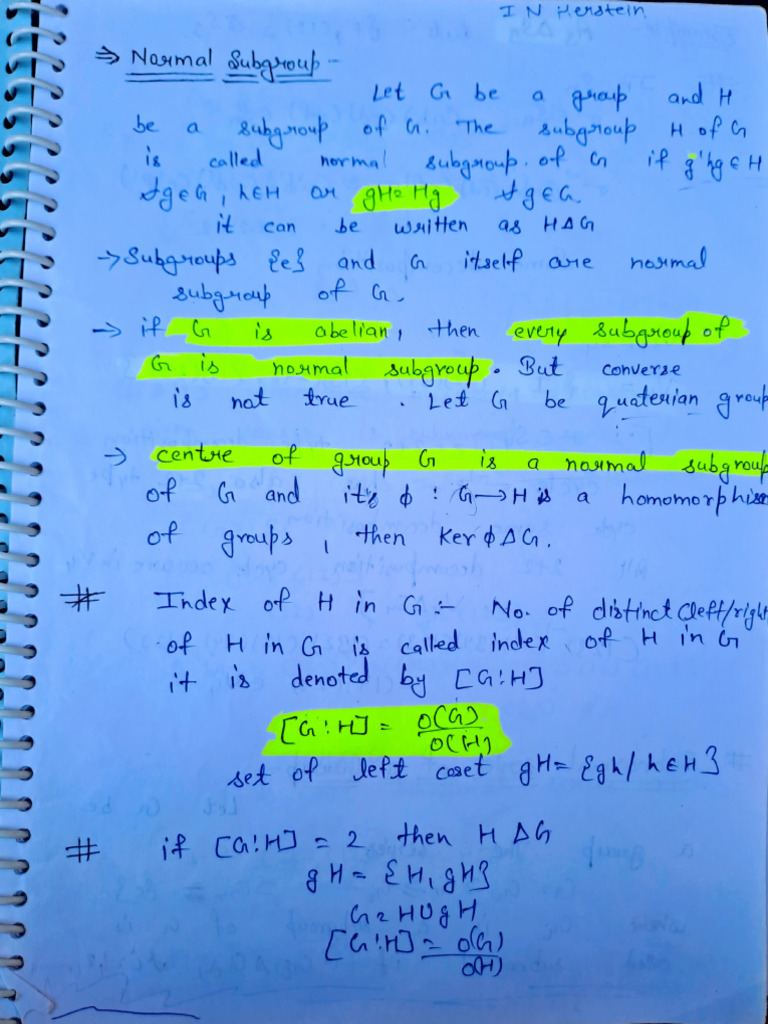 I N Herstein
⇒ Normal Subgroup -
Let G be a group and H
be a subgroup of G. The subgroup H of G
is called normal subgroup of G if g⁻¹hg ∈ H
∀g∈G, h∈H or gH=Hg ∀g∈G.
it can be written as H∆G
→ Subgroups {e} and G itself are normal
subgroup of G.
→ if G is abelian, then every subgroup of
G is normal subgroup. But converse
is not true. Let G be quaterian group
→ centre of group G is a normal subgroup
of G and it's ϕ : G→H is a homomorphism
of groups, then Ker ϕ∆G.
# Index of H in G :- No. of distinct (left/right
of H in G is called index of H in G
it is denoted by [G:H]
[G:H] = o(G)/o(H)
set of left coset gH = {gh / h∈H}
# if [G:H] = 2 then H ∆ G
gH = {H, gH}
G = H∪gH
[G:H] = o(G)/o(H)